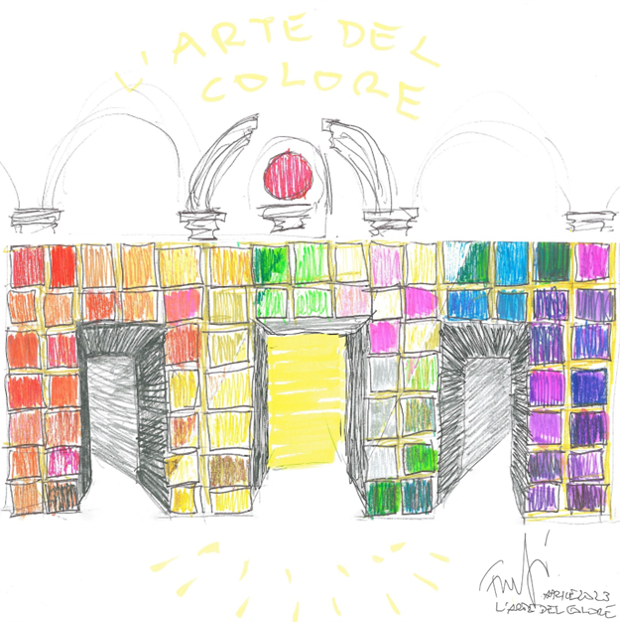 L'ARTE DEL
COLORE
APRILE 2023
L'ARTE DEL COLORE